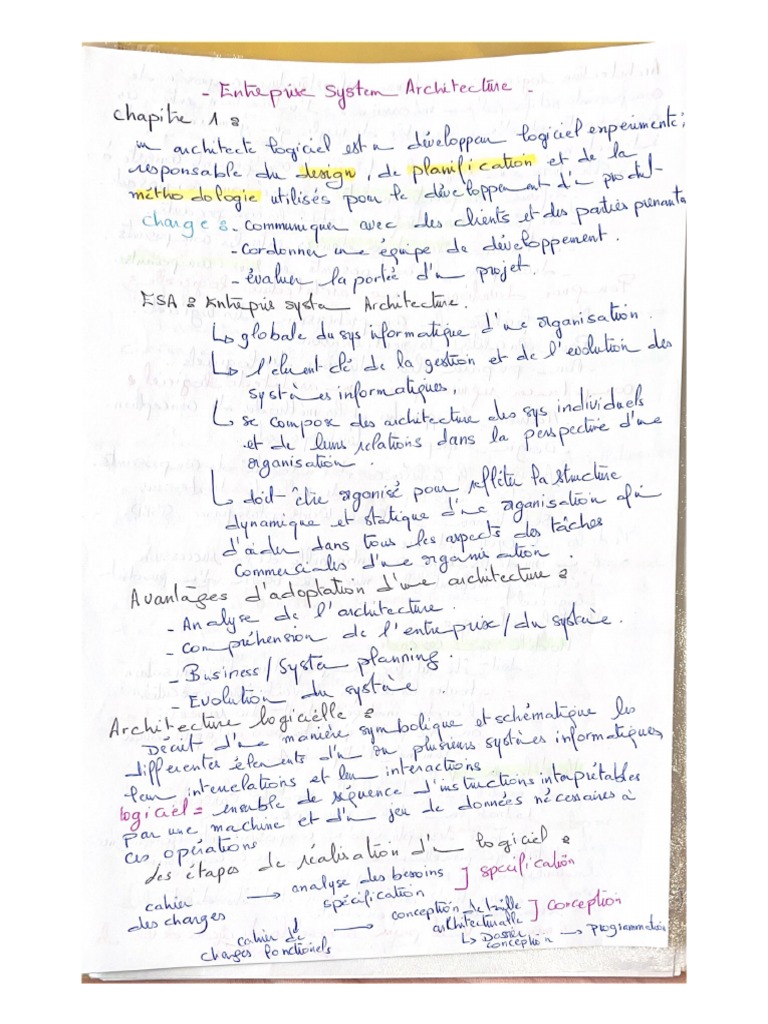 - Entreprise System Architecture -
Chapitre 1 :
un architecte logiciel est un développeur logiciel expérimenté;
responsable du design, de planification et de la
méthodologie utilisés pour le développement d'un produit
charges - communiquer avec des clients et des parties prenantes
- Cordonner une équipe de développement.
- évaluer la portée d'un projet.
ESA : Entrepris system Architecture.
↳ globale du sys informatique d'une organisation.
↳ l'élément clé de la gestion et de l'évolution des
systèmes informatiques.
↳ se compose des architecture des sys individuels
et de leurs relations dans la perspective d'une
organisation.
↳ doit-être organisé pour refléter la structure
dynamique et statique d'une organisation afin
d'aider dans tous les aspects des tâches
commerciales d'une organisation.
Avantages d'adoptation d'une architecture :
- Analyse de l'architecture.
- compréhension de l'entreprise/du système.
- Business/System planning.
- Evolution du système
Architecture logicielle :
Décrit d'une manière symbolique et schématique les
différentes éléments d'un ou plusieurs systèmes informatiques,
leur interrelations et leur interactions.
logiciel = ensemble de séquence d'instructions interprétables
par une machine et d'un jeu de données nécessaires à
ces opérations
des étapes de réalisation d'un logiciel :
cahier des charges → analyse des besoins spécification ] spécification
cahier de charges fonctionels → conception détaillé architecturalle ] conception
↳ Dossier conception → programmation